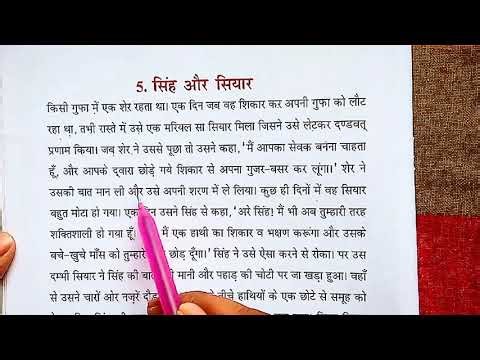 5. सिंह और सियार
किसी गुफा में एक शेर रहता था। एक दिन जब वह शिकार कर अपनी गुफा को लौट
रहा था, तभी रास्ते में उसे एक मरियल सा सियार मिला जिसने उसे लेटकर दण्डवत्
प्रणाम किया। जब शेर ने उससे पूछा तो उसने कहा, 'मैं आपका सेवक बनना चाहता
हूँ, और आपके द्वारा छोड़े गये शिकार से अपना गुजर-बसर कर लूंगा।' शेर ने
उसकी बात मान ली और उसे अपनी शरण में ले लिया। कुछ ही दिनों में वह सियार
बहुत मोटा हो गया। एक दिन उसने सिंह से कहा, 'अरे सिंह! मैं भी अब तुम्हारी तरह
शक्तिशाली हो गया हूँ। मैं एक हाथी का शिकार व भक्षण करूंगा और उसके
बचे-खुचे माँस को तुम्हारे छोड़ दूँगा।' सिंह ने उसे ऐसा करने से रोका। पर उस
दम्भी सियार ने सिंह की बात मानी और पहाड़ की चोटी पर जा खड़ा हुआ। वहाँ
से उसने चारों ओर नज़रें नीचे हाथियों के एक छोटे से समूह को